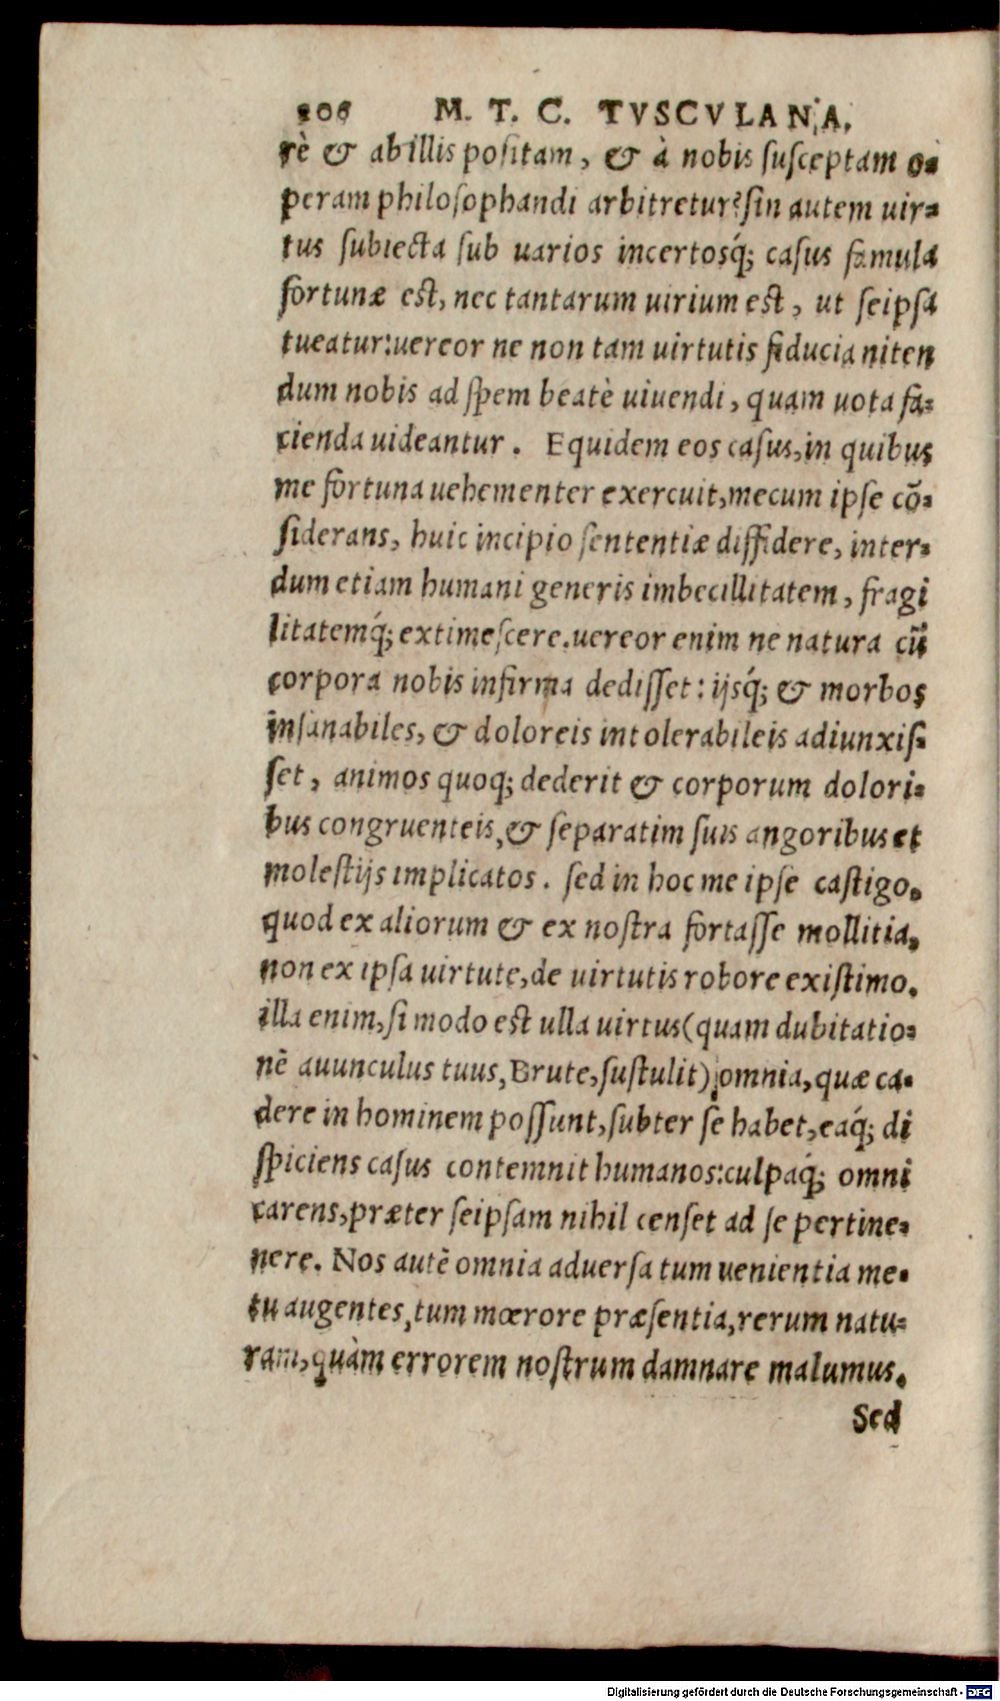 206 M. T. C. TVSCVLANA.
rè & ab illis positam, & à nobis susceptam o-
peram philosophandi arbitretur? sin autem uir-
tus subiecta sub uarios incertosq́; casus famula
fortunæ est, nec tantarum uirium est, ut seipsa
tueatur: uereor ne non tam uirtutis fiducia niten
dum nobis ad spem beatè uiuendi, quam uota fa-
cienda uideantur. Equidem eos casus, in quibus
me fortuna uehementer exercuit, mecum ipse cō-
siderans, huic incipio sententiæ diffidere, inter-
dum etiam humani generis imbecillitatem, fragi
litatemq́; extimescere. uereor enim ne natura cū
corpora nobis infirma dedisset: ijsq́; & morbos
insanabiles, & doloreis intolerabileis adiunxis-
set, animos quoq; dederit & corporum dolori-
bus congruenteis, & separatim suis angoribus et
molestijs implicatos. sed in hoc me ipse castigo,
quod ex aliorum & ex nostra fortasse mollitia,
non ex ipsa uirtute, de uirtutis robore existimo.
illa enim, si modo est ulla uirtus (quam dubitatio-
nē auunculus tuus, Brute, sustulit) omnia, quæ ca-
dere in hominem possunt, subter se habet, eaq́; di
spiciens casus contemnit humanos: culpaq́; omni
carens, præter seipsam nihil censet ad se pertine-
nere. Nos autē omnia aduersa tum uenientia me-
tu augentes, tum mœrore præsentia, rerum natu-
ram, quàm errorem nostrum damnare malumus.
Sed
Digitalisierung gefördert durch die Deutsche Forschungsgemeinschaft - DFG